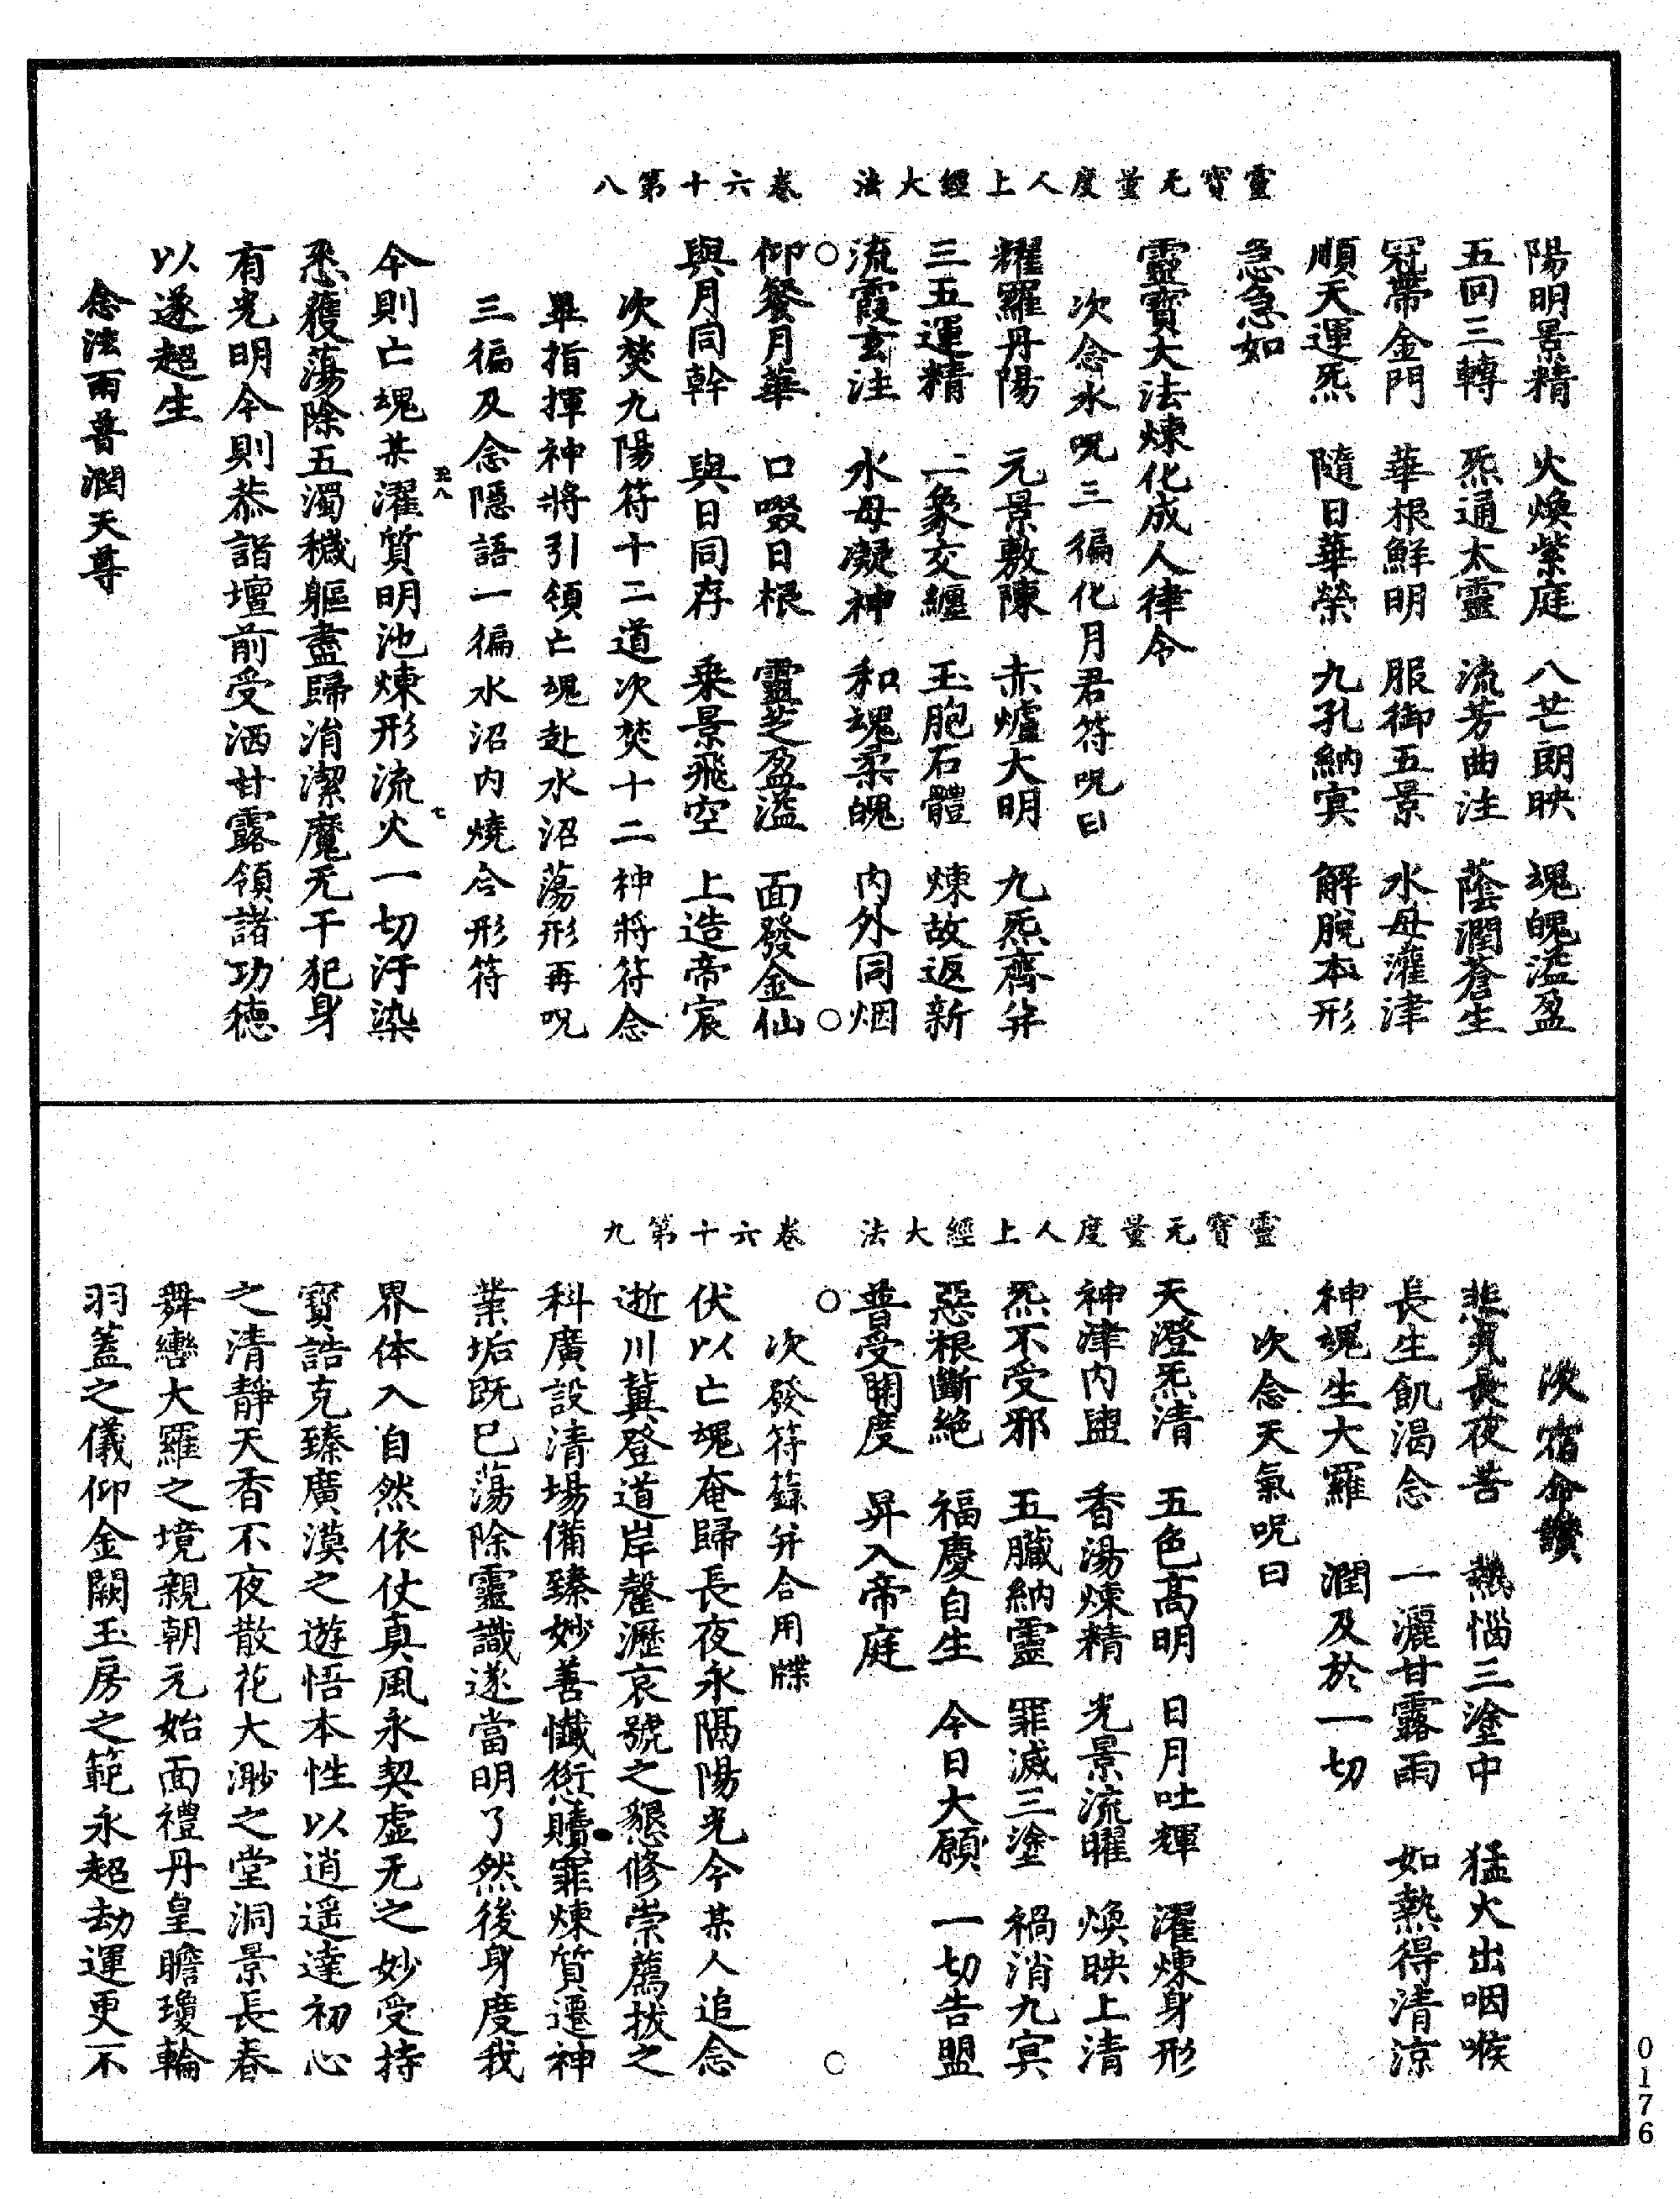 靈寶无量度人上經大法　卷六十第八
陽明景精　火煥紫庭　八芒朗映　魂魄溢盈
五回三轉　炁通太靈　流芳曲注　蔭潤蒼生
冠帶金門　華根鮮明　服御五景　水母灌津
順天運炁　隨日華榮　九孔納㝠　解脫本形
急急如
靈寶大法煉化成人律令
次念水呪三徧化月君符呪曰
耀羅丹陽　元景敷陳　赤爐大明　九炁齊并
三五運精　二象交纏　玉胞石體　煉故返新
流霞玄注　水母凝神　和魂柔魄　內外同烟
仰餐月華　口啜日根　靈芝盈溢　面發金仙
與月同幹　與日同存　乘景飛空　上造帝宸
次焚九陽符十二道次焚十二神將符念
畢指揮神將引領亡魂赴水沼蕩形再呪
三徧及念隱語一徧水沼內燒合形符
今則亡魂某濯質明池煉形流火一切汙染
悉獲蕩除五濁穢軀盡歸消潔魔无干犯身
有光明今則恭詣壇前受洒甘露領諸功德
以遂超生
念法雨普潤天尊
靈寶无量度人上經大法　卷六十第九
次宿命讚
悲夫長夜苦　熱惱三塗中　猛火出咽喉
長生飢渴念　一灑甘露雨　如熱得清涼
神魂生大羅　潤及於一切
次念天氣呪曰
天澄炁清　五色高明　日月吐輝　濯煉身形
神津內盥　香湯煉精　光景流曜　煥映上清
炁不受邪　五臟納靈　罪滅三塗　禍消九㝠
惡根斷絕　福慶自生　今日大願　一切告盟
普受開度　昇入帝庭
次發符籙并合用牒
伏以亡魂奄歸長夜永隔陽光今某人追念
逝川冀登道岸罄瀝哀號之懇修崇薦拔之
科廣設清場備臻妙善懺愆贖罪煉質遷神
業垢既已蕩除靈識遂當明了然後身度我
界体入自然依仗真風永契虛无之妙受持
寶誥克臻廣漠之遊悟本性以逍遥達初心
之清靜天香不夜散花大渺之堂洞景長春
舞轡大羅之境親朝元始面禮丹皇瞻瓊輪
羽蓋之儀仰金闕玉房之範永超劫運更不
0176